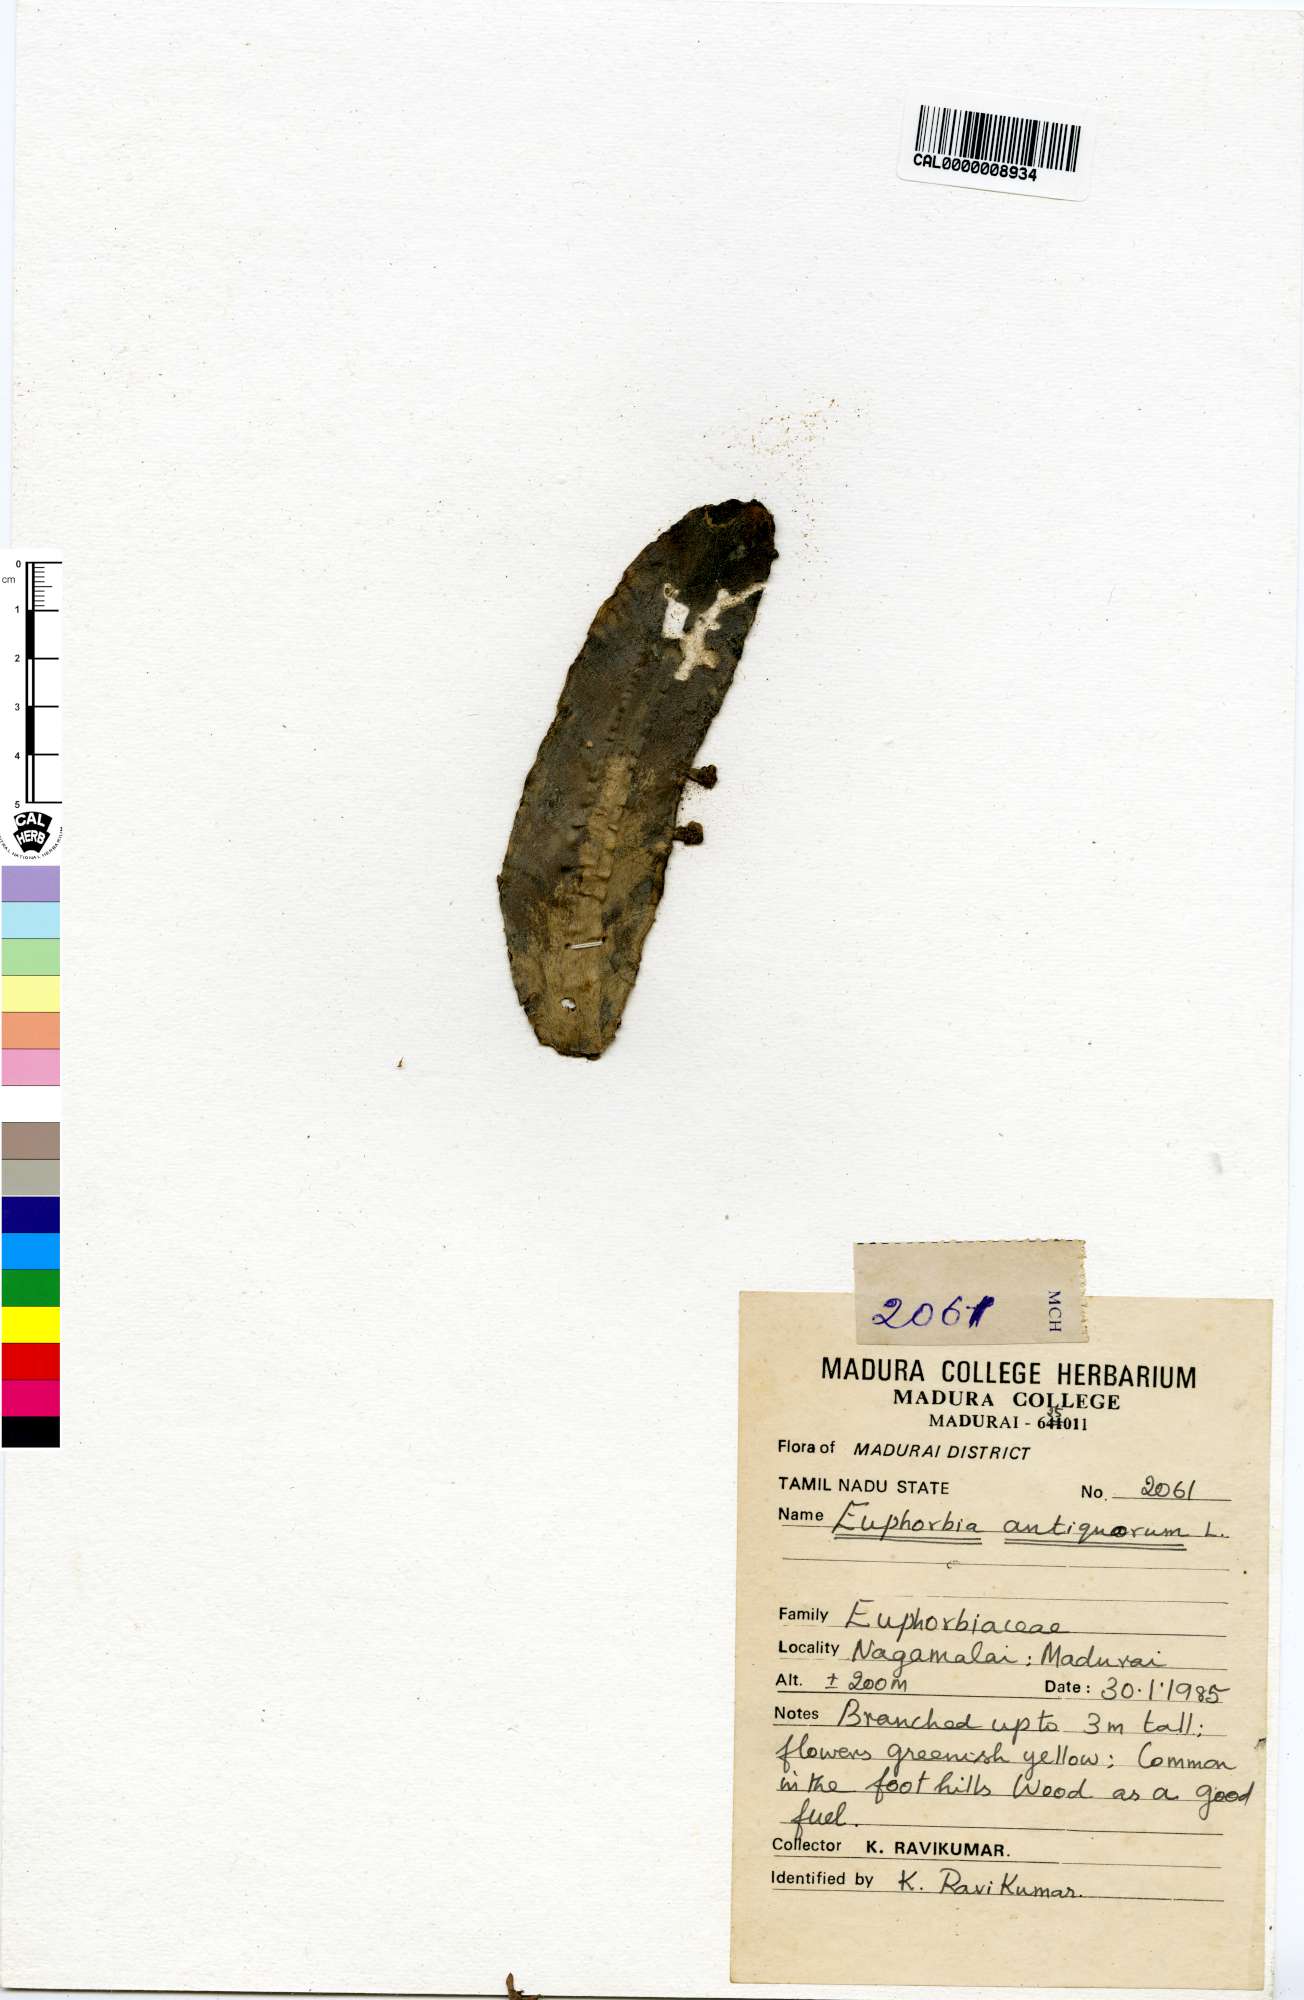 CAL0000008934
0
cm
1
2
3
4
5
CAL
HERB
CENTRAL NATIONAL HERBARIUM
2061
MCH
MADURA COLLEGE HERBARIUM
MADURA COLLEGE
35
MADURAI - 641011
Flora of MADURAI DISTRICT
TAMIL NADU STATE No. 2061
Name Euphorbia antiquorum L.
Family Euphorbiaceae
Locality Nagamalai : Madurai
Alt. ± 200m Date : 30.1.1985
Notes Branched upto 3m tall;
flowers greenish yellow; Common
in the foot hills Wood as a good
fuel.
Collector K. RAVIKUMAR.
Identified by K. Ravikumar.